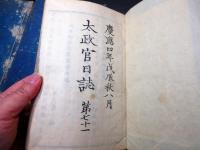 慶應四年戊辰秋八月
太政官日誌 第七十一